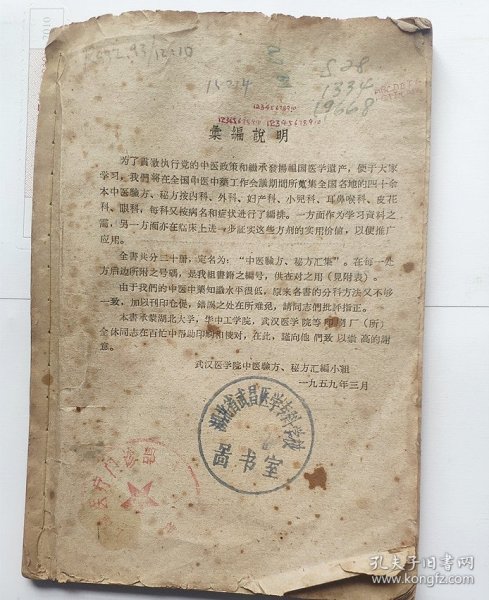 R692.93/12:10
15214
S28
1334
19668
ABCDEFG
12345678910
12345678910 12345678910
彙編說明
为了貫徹执行党的中医政策和繼承發揚祖国医学遺产，便于大家
学习，我們将在全国中医中藥工作会議期間所蒐集全国各地的四十余
本中医驗方、秘方按內科、外科、妇产科、小兒科、耳鼻喉科、皮花
科、眼科，每科又按病名和症状进行了編排。一方面作为学习資料之
需，另一方面亦在临床上进一步証实这些方剂的实用价值，以便推广
应用。
全書共分二十册，定名为：“中医驗方、秘方汇集”。在每一处
方后边所附之号碼，是我組書籍之編号，供查对之用（見附表）。
由于我們的中医中藥知識水平很低，原來各書的分科方法又不够
一致，加以刊印仓促，錯誤之处在所难免，請同志們批評指正。
本書承蒙湖北大学，华中工学院，武汉医学院等印刷厂（所）
全体同志在百忙中帮助印刷和校对，在此，謹向他們致以崇高的謝
意。
武汉医学院中医驗方、秘方汇編小組
一九五九年三月
湖北省武昌医学专科学校
图书室
门诊部
孔夫子旧书网
kongfz.com